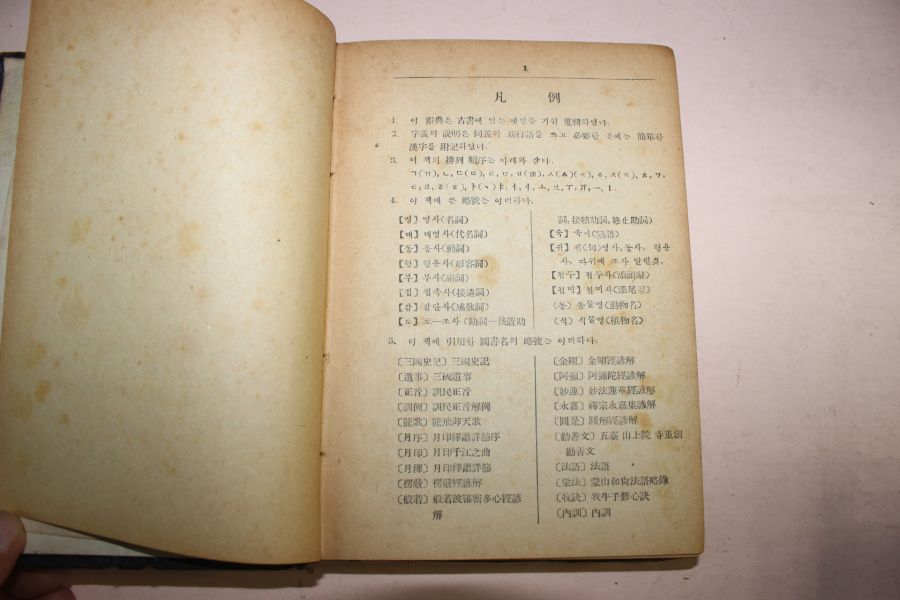 1
凡 例
1. 이 辭典은 古書에 있는 옛말을 가워 蒐輯하였다.
2. 字義의 說明은 同義의 現行語를 쓰고 必要한 곳에는 簡單한
漢字를 附記하였다.
3. 이 책의 排列 順序는 아래와 같다.
ㄱ(ㄲ), ㄴ, ㄷ(ㄸ), ㄹ, ㅁ, ㅂ(ㅃ), ㅅ(ㅿ)(ㅆ), ㅇ, ㅈ(ㅉ), ㅊ, ㅋ,
ㅌ, ㅍ, ㅎ(ㆅ), ㅏ(ㆍ), ㅑ, ㅓ, ㅕ, ㅗ, ㅛ, ㅜ, ㅠ, ㅡ, ㅣ.
4. 이 책에 쓴 略號는 이러하다.
【명】 명사(名詞)
【대】 대명사(代名詞)
【동】 동사(動詞)
【형】 형용사(形容詞)
【부】 부사(副詞)
【접】 접속사(接續詞)
【감】 감탄사(感歎詞)
【도】 도—조사(助詞—後置助
詞, 接續助詞, 終止助詞)
【숙】 숙어(熟語)
【귀】 귀(句)명사, 동사, 형용
사, 따위에 조사 달린것.
【첨두】 첨두사(添頭辭)
【첨미】 첨미사(添尾辭)
(동) 동물명(動物名)
(식) 식물명(植物名)
5. 이 책에 引用한 圖書名의 略號는 이러하다.
〔三國史記〕 三國史記
〔遺事〕 三國遺事
〔正音〕 訓民正音
〔訓例〕 訓民正音解例
〔龍歌〕 龍飛御天歌
〔月序〕 月印釋譜詳節序
〔月印〕 月印千江之曲
〔月釋〕 月印釋譜詳節
〔楞嚴〕 楞嚴經諺解
〔般若〕 般若波羅密多心經諺
解
〔金剛〕 金剛經諺解
〔阿彌〕 阿彌陀經諺解
〔妙蓮〕 妙法蓮華經諺解
〔永嘉〕 禪宗永嘉集諺解
〔圓覺〕 圓覺經諺解
〔勸善文〕 五臺山上院寺重創
勸善文
〔法語〕 法語
〔蒙法〕 蒙山和尙法語略錄
〔牧訣〕 牧牛子修心訣
〔內訓〕 內訓